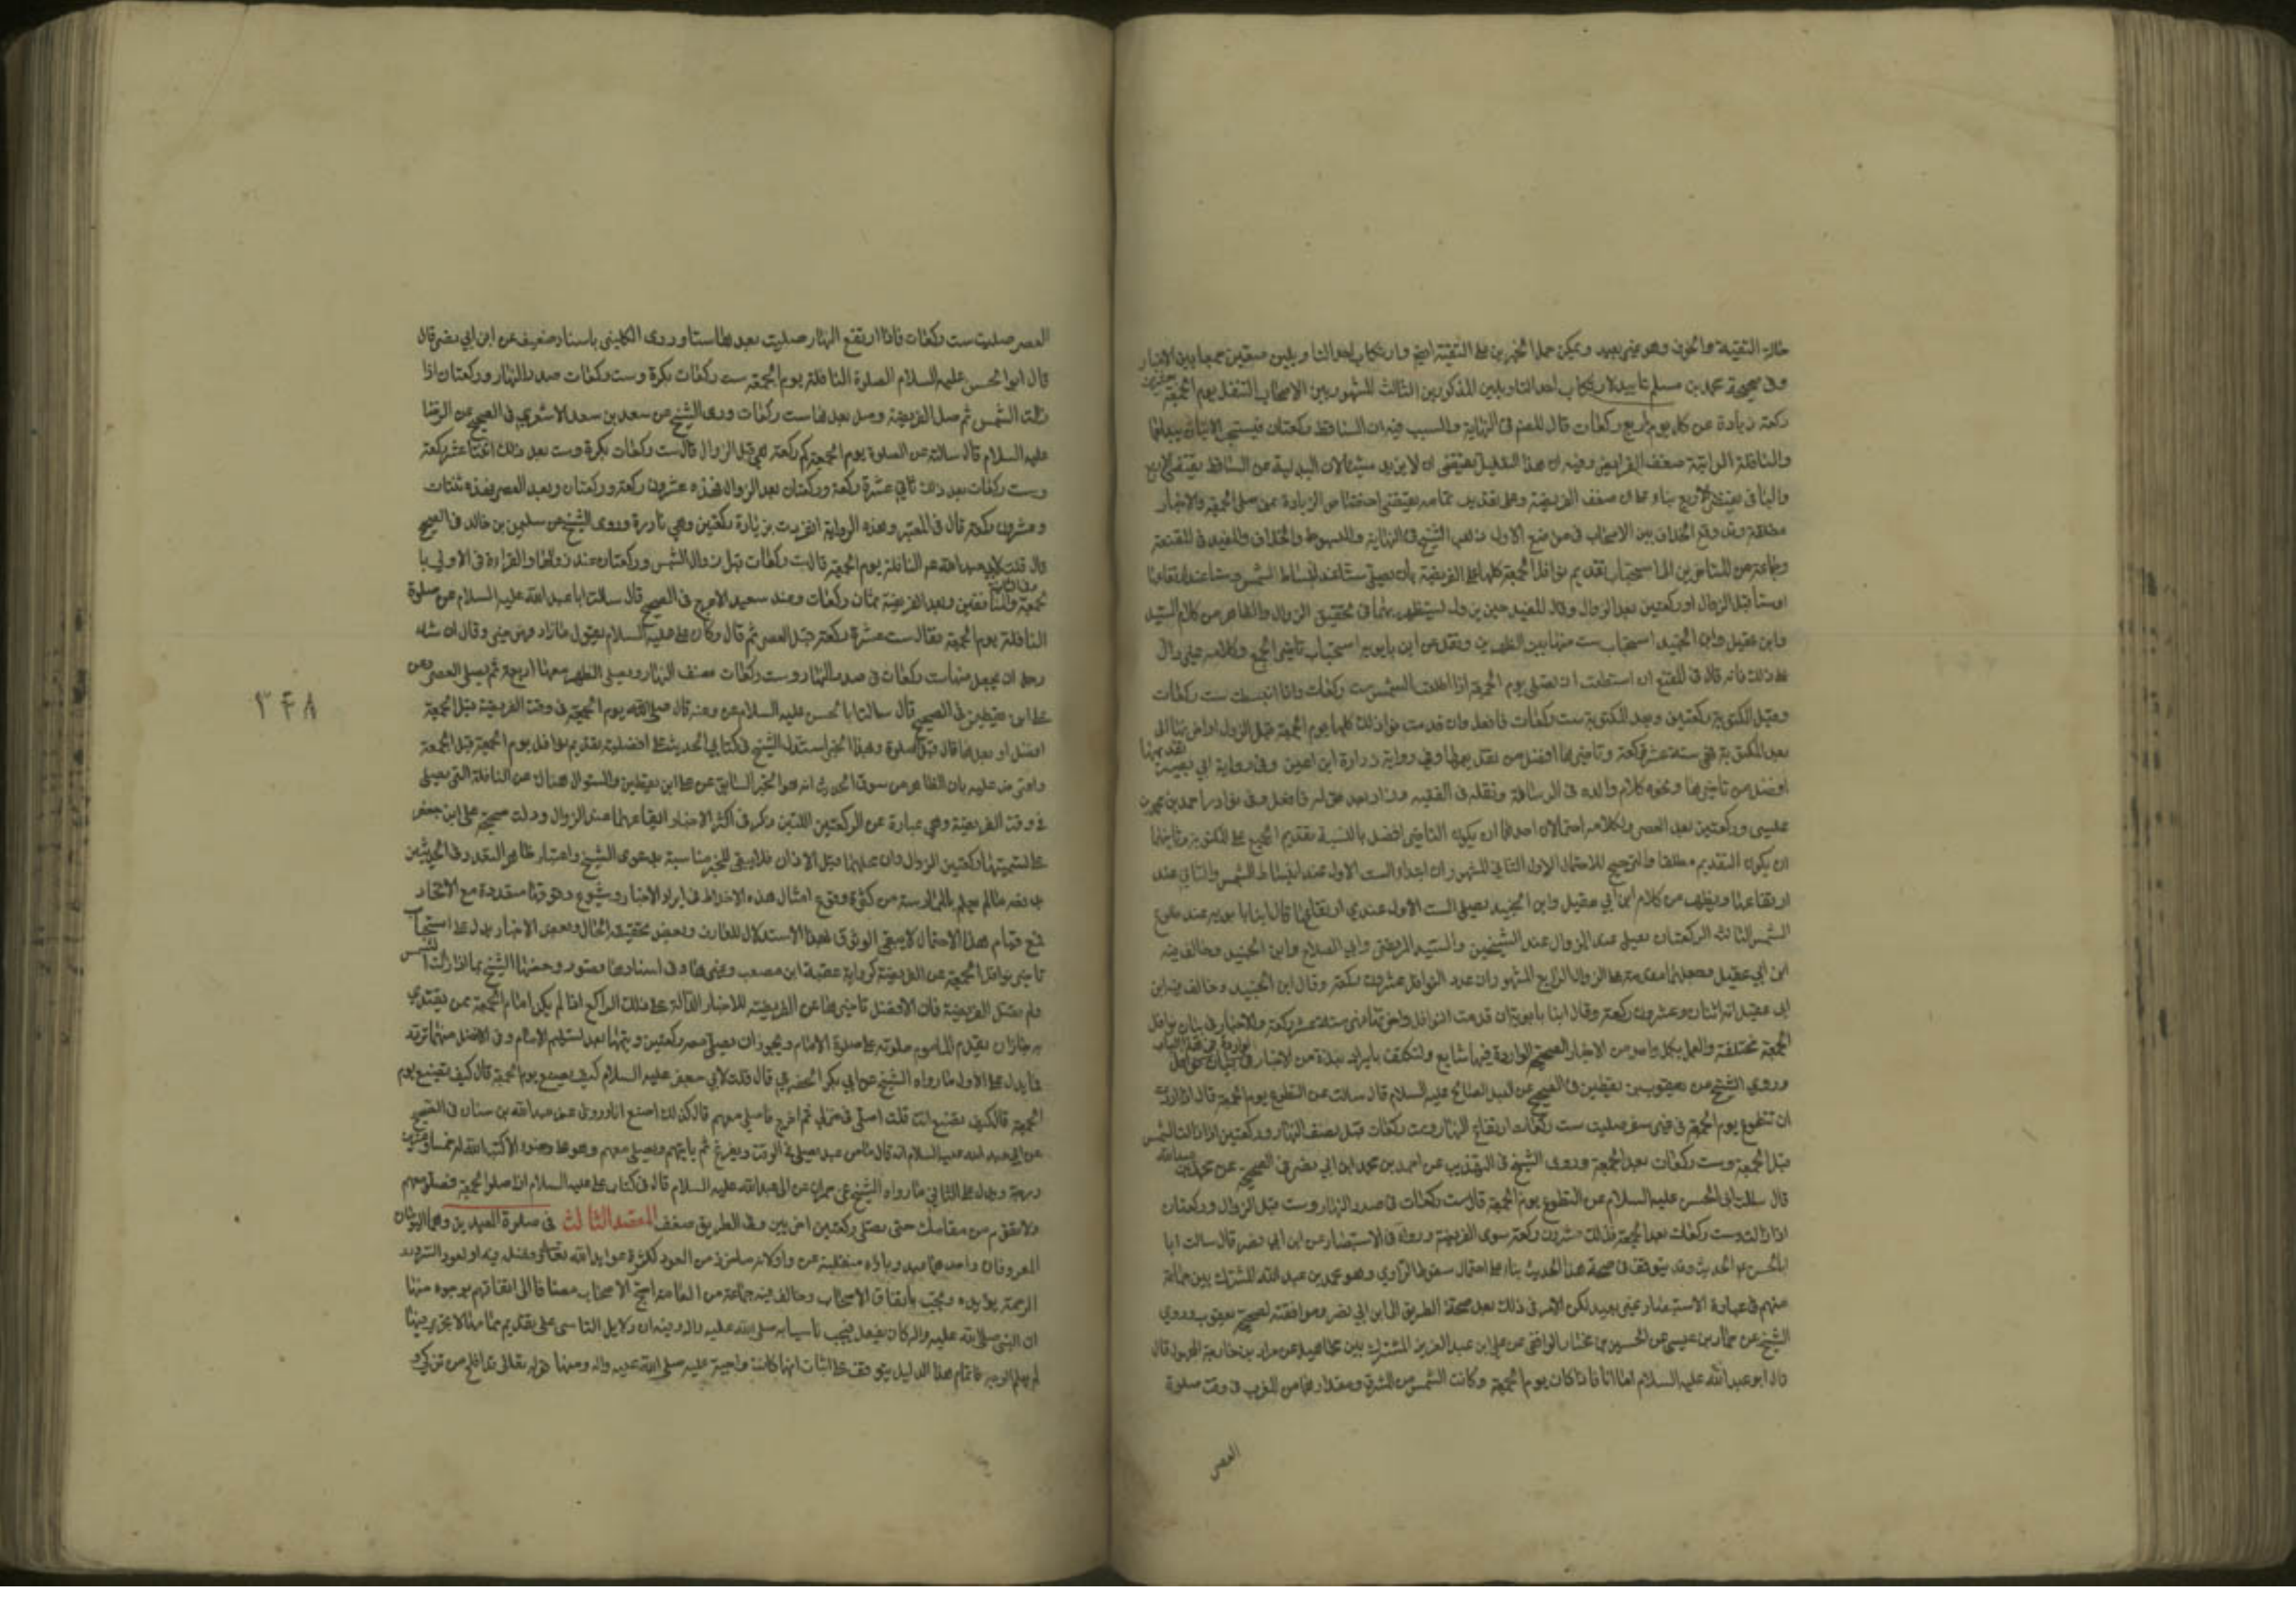 حال التقية والخوف وهو غير بعيد ويمكن حمل الخبرين على التقية ايضا وارتكاب احد التاويلين متعين جمعا بين الاخبار
وفي صحيحة محمد بن مسلم تاييد لارتكاب احد التاويلين المذكورين الثالث المشهور بين الاصحاب التنفل يوم الجمعة بعشرين
ركعة زيادة عن كل يوم باربع ركعات قال المصنف في النهاية والسبب فيه ان الساقط ركعتان فيستحب الاتيان ببدلهما
والنافلة الراتبة ضعف الفرايض وفيه ان هذا التعليل يقتضي ان لا يزيد ستا لان البدلية عن الساقط يقتضي الاربع
مطلقة وقد وقع الخلاف بين الاصحاب في مواضع الاول ذهب الشيخ في النهاية والمبسوط والخلاف والمفيد في المقنعة
وجماعة من المتاخرين الى استحباب تقديم نوافل الجمعة كلها على الفريضة بان يصلي ستا عند انبساط الشمس وستا عند ارتفاعها
وستا قبل الزوال وركعتين بعد الزوال وقال المفيد حين تزول ليستظهر بهما في تحقيق الزوال والظاهر من كلام السيد
وابن عقيل وابن الجنيد استحباب ست منها بين الظهرين ونقل عن ابن بابويه استحباب تاخير الجميع وكلامه غير دال
على ذلك فانه قال في المقنع ان استطعت ان تصلي يوم الجمعة اذا طلعت الشمس ست ركعات واذا انبسطت ست ركعات
وقبل المكتوبة ركعتين وبعد المكتوبة ست ركعات فافعل وان قدمت نوافلك كلها يوم الجمعة قبل الزوال او اخرتها الى
بعد المكتوبة فهي ستة عشر ركعة وتاخيرها افضل من تقديمها وفي رواية زرارة ابن اعين وفي رواية ابي بصير تقديمها
افضل من تاخيرها ونحوه كلام والده في الرسالة ونقله في الفقيه وزاد بعد قوله فافعل وفي نوادر احمد بن محمد بن
عيسى وركعتين بعد العصر ولكلامه احتمالان احدهما ان يكون التاخير افضل بالنسبة بتقديم الجميع على المكتوبة وثانيهما
ان يكون التقديم مطلقا والترجيح للاحتمال الاول الثاني المشهور ان ابتداء الست الاول عند انبساط الشمس والثاني عند
ارتفاعها ويظهر من كلام ابن ابي عقيل وابن الجنيد يصلي الست الاول عندي ارتفاعها قال ابنا بابويه عند طلوع
الشمس الثالث الركعتان يصلي عند الزوال عند الشيخين والسيد المرتضى وابي الصلاح وابن الجنيد وخالف فيه
ابن ابي عقيل فجعلهما مقدمة على الزوال الرابع المشهور ان عدد النوافل عشرون ركعة وقال ابن الجنيد وخالف فيه ابن
ابي عقيل انه اثنتان وعشرون ركعة وقال ابنا بابويه ان قدمت النوافل واخرتها فهي ستة عشر ركعة والاخبار في بيان نوافل
الجمعة مختلفة والعمل بكل واحد من الاخبار الصحيحة الواردة فيها شايع ولنكتف بايراد نبذة من الاخبار الواردة في هذا الباب
وروى الشيخ عن يعقوب بن يقطين في الصحيح عن العبد الصالح عليه السلام قال سالت عن التطوع يوم الجمعة قال اذا اردت
ان تتطوع يوم الجمعة في غير سفر صليت ست ركعات ارتفاع النهار وست ركعات قبل نصف النهار وركعتين اذا زالت الشمس
قبل الجمعة وست ركعات بعد الجمعة وروى الشيخ في التهذيب عن احمد بن محمد ابن ابي نصر في الصحيح عن محمد بن عبدالله
قال سالت ابا الحسن عليه السلام عن التطوع يوم الجمعة قال ست ركعات في صدر النهار وست قبل الزوال وركعتان
اذا زالت وست ركعات بعد الجمعة فذلك عشرون ركعة سوى الفريضة ورواه في الاستبصار عن ابن ابي نصر قال سالت ابا
الحسن ع الحديث وقد يتوقف في صحة هذا الحديث بناء على احتمال سقوط الراوي وهو محمد بن عبد الله المشترك بين جماعة
منهم في عبارة الاستبصار غير بعيد لكن الامر في ذلك بعد صحة الطريق الى ابن ابي نصر وموافقته لصحيح يعقوب وروى
الشيخ عن حماد بن عيسى عن الحسين بن مختار الواقفي عن علي ابن عبد العزيز المشترك بين مجاهيل عن مراد بن خارجة المجهول قال
قال ابو عبد الله عليه السلام اما انا فاذا كان يوم الجمعة وكانت الشمس من المشرق مقدارها من المغرب في وقت صلوة
العصر
العصر صليت ست ركعات فاذا ارتفع النهار صليت بعدها ستا وروى الكليني باسناد ضعيف عن ابن ابي نصر قال
قال ابو الحسن عليه السلام الصلوة النافلة يوم الجمعة ست ركعات بكرة وست ركعات صدر النهار وركعتان اذا
زالت الشمس ثم صل الفريضة وصل بعدها ست ركعات وروى الشيخ عن سعد بن سعد الاشعري في الصحيح عن الرضا
عليه السلام قال سالته عن الصلوة يوم الجمعة كم ركعة هي قبل الزوال قال ست ركعات بكرة وست بعد ذلك اثنتا عشر ركعة
وست ركعات بعد ذلك ثماني عشرة ركعة وركعتان بعد الزوال فهذه عشرون ركعة وركعتان وبعد العصر فهذه ثنتان
وعشرون ركعة قال في المعتبر وهذه الرواية انفردت بزيادة ركعتين وهي نادرة وروى الشيخ عن سليمن بن خالد في الصحيح
قال قلت لابي عبد الله ع النافلة يوم الجمعة قال ست ركعات قبل زوال الشمس وركعتان عند زوالها والقراءة في الاولى با
لجمعة وفي الثانية بالمنافقين وبعد الفريضة ثمان ركعات وعند سعيد الاعرج في الصحيح قال سالت ابا عبد الله عليه السلام عن صلوة
النافلة يوم الجمعة فقال ست عشرة ركعة قبل العصر ثم قال وكان علي عليه السلام يقول ما زاد فهو خير وقال ان شاء
رجل ان يجعل منها ست ركعات في صدر النهار وست ركعات نصف النهار ويصلي الظهر معها اربعة ثم يصلي العصر وعن
علي ابن يقطين في الصحيح قال سالت ابا الحسن عليه السلام عن النافلة يوم الجمعة في وقت الفريضة قبل الجمعة
افضل او بعدها قال قبل الصلوة وبهذا الخبر استدل الشيخ في كتابي الحديث على افضلية تقديم نوافل يوم الجمعة قبل الجمعة
واعترض عليه بان الظاهر من سوق الحديث انه هو الخبر السابق عن علي ابن يقطين والسؤال هناك عن النافلة التي يصلي
في وقت الفريضة وهي عبارة عن الركعتين اللتين ذكر في اكثر الاخبار ايقاعهما عند الزوال ودلت صحيحة علي ابن جعفر
على تسميتها ركعتين الزوال وان محلهما قبل الاذان فلا يبقى للخبر مناسبة بدعوى الشيخ واعتبار ظاهر التعدد في الحديثين
مع قيام هذا الاحتمال لا يبقى الوثوق بهذا الاستدلال وبعض الاخبار يدل على استحباب
تاخير نوافل الجمعة عن الفريضة كرواية عقبة ابن مصعب وغيرها وفي اسنادها قصور وحملها الشيخ بما اذا زالت الشمس
ولم يتنفل الفريضة فان الافضل تاخيرها عن الفريضة للاخبار الدالة على ذلك الرابع اذا لم يكن امام الجمعة ممن يقتدى
به جاز ان يقدم الماموم صلوته على صلوة الامام ويجوز ان يصلي معه ركعتين ويتمها بعد تسليم الامام وفي الافضل منهما تردد
فما يدل على الاول ما رواه الشيخ عن ابي بكر الحضرمي قال قلت لابي جعفر عليه السلام كيف تصنع يوم الجمعة قال كيف تصنع يوم
الجمعة قال كيف تصنع انت قلت اصلي في منزلي ثم اخرج فاصلي معهم قال كذلك اصنع انا وروى عن عبد الله بن سنان في الصحيح
عن ابي عبد الله عليه السلام انه قال ما من عبد يصلي في الوقت ويفرغ ثم ياتيهم ويصلي معهم وهو على وضوء الا كتب الله له خمسا وعشرين
درجة ويدل على الثاني ما رواه الشيخ عن حمران عن ابي عبد الله عليه السلام قال في كتاب علي عليه السلام اذا صلوا الجمعة فصلوا معهم
ولا تقومن من مقامك حتى تصلي ركعتين اخريين وفي الطريق ضعف المقصد الثالث في صلوة العيدين وهما اليومان
المعروفان واحدهما عيد وياؤه منقلبة عن واو لانه ماخوذ من العود لكثرة عوايد الله تعالى وفضله فيه او لعود السرور
الرحمة بعوده وتجب باتفاق الاصحاب وخالف فيه جماعة من العامة احتج الاصحاب مضافا الى اتفاقهم بوجوه منها
ان النبي صلى الله عليه واله كان يفعل فيجب تاسيا به صلى الله عليه واله وفيه ان دلايل التاسي على تقديم تمامها لا يجري فيما
لم يعلم الوجه فاتمام هذا الدليل يتوقف على اثبات انها كانت واجبة عليه صلى الله عليه واله ومنها قوله تعالى قد افلح من تزكى و
۳۴۸